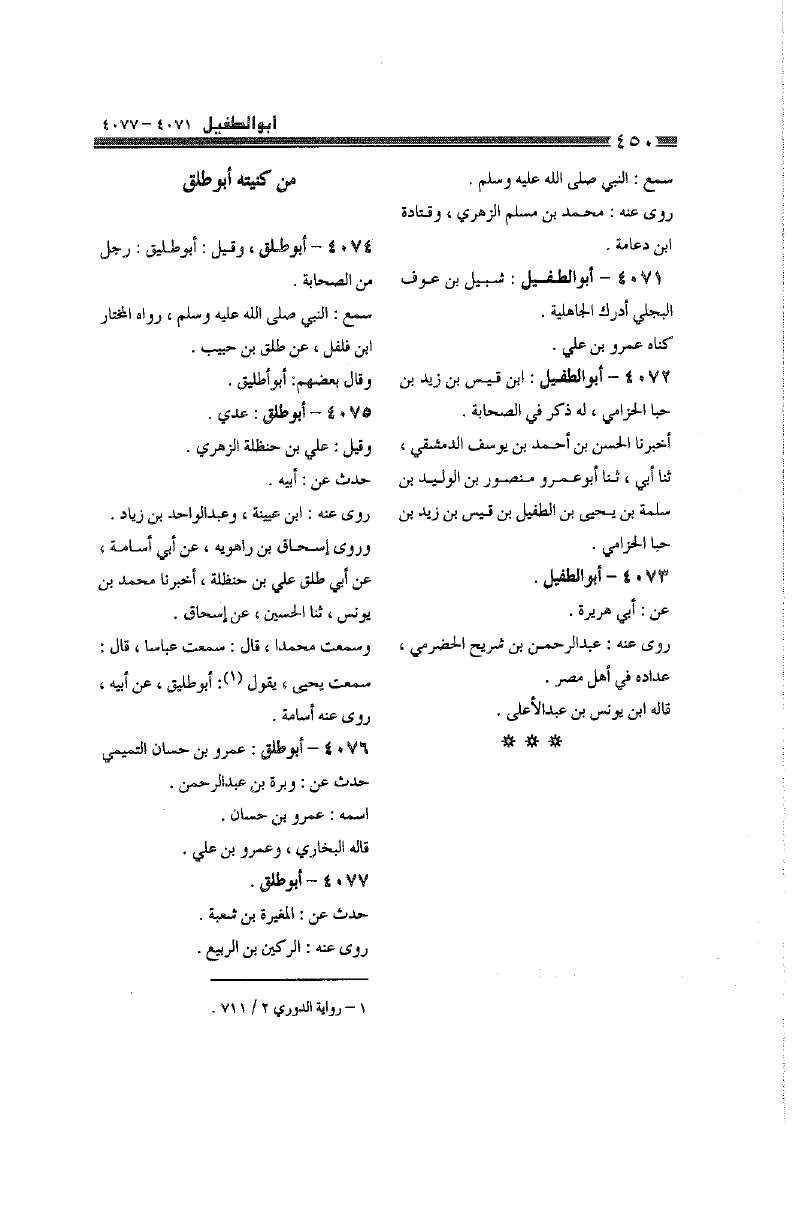 أبوالطفيل ٤٠٧١ – ٤٠٧٧
٤٥٠
سمع : النبي صلى الله عليه وسلم .
روى عنه : محمد بن مسلم الزهري ، وقتادة
ابن دعامة .
٤٠٧١ – أبوالطفيل : شبيل بن عوف
البجلي أدرك الجاهلية .
كناه عمرو بن علي .
٤٠٧٢ – أبوالطفيل : ابن قيس بن زيد بن
حبا الحزامي ، له ذكر في الصحابة .
أخبرنا الحسن بن أحمد بن يوسف الدمشقي ،
ثنا أبي ، ثنا أبوعمرو منصور بن الوليد بن
سلمة بن يحيى بن الطفيل بن قيس بن زيد بن
حبا الحزامي .
٤٠٧٣ – أبوالطفيل .
عن : أبي هريرة .
روى عنه : عبدالرحمن بن شريح الحضرمي ،
عداده في أهل مصر .
قاله ابن يونس بن عبدالأعلى .
* * *
من كنيته أبوطلق
٤٠٧٤ – أبوطلق ، وقيل : أبوطليق : رجل
من الصحابة .
سمع : النبي صلى الله عليه وسلم ، رواه المختار
ابن فلفل ، عن طلق بن حبيب .
وقال بعضهم: أبوأطليق .
٤٠٧٥ – أبوطلق : عدي .
وقيل : علي بن حنظلة الزهري .
حدث عن : أبيه .
روى عنه : ابن عيينة ، وعبدالواحد بن زياد .
وروى إسحاق بن راهويه ، عن أبي أسامة ،
عن أبي طلق علي بن حنظلة ، أخبرنا محمد بن
يونس ، ثنا الحسين ، عن إسحاق .
وسمعت محمدا ، قال : سمعت عباسا ، قال :
سمعت يحيى ، يقول (١): أبوطليق ، عن أبيه ،
روى عنه أسامة .
٤٠٧٦ – أبوطلق : عمرو بن حسان التميمي
حدث عن : وبرة بن عبدالرحمن .
اسمه : عمرو بن حسان .
قاله البخاري ، وعمرو بن علي .
٤٠٧٧ – أبوطلق .
حدث عن : المغيرة بن شعبة .
روى عنه : الركين بن الربيع .
١ – رواية الدوري ٢ / ٧١١ .